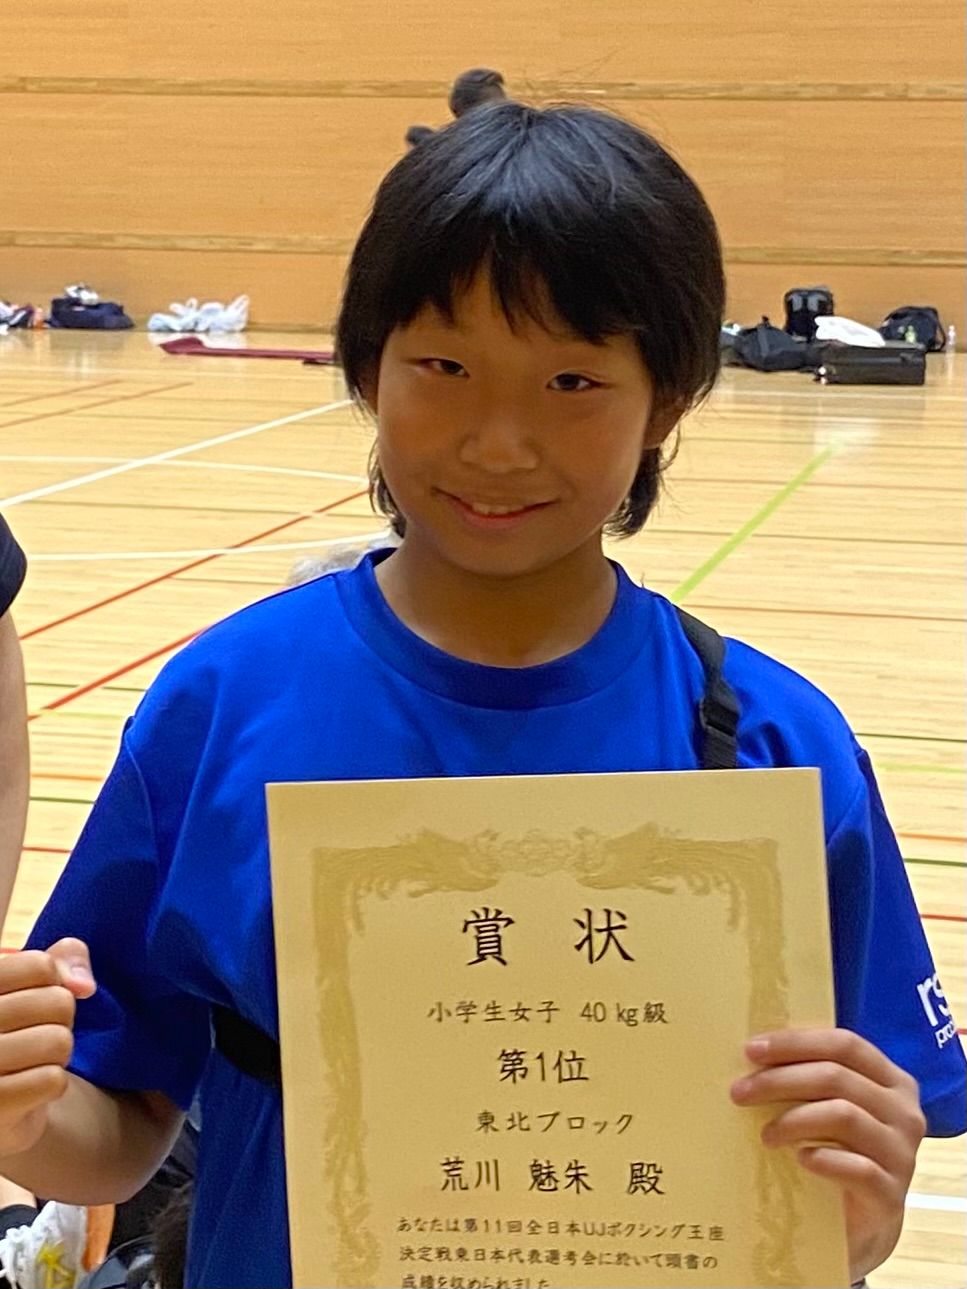 賞 状
小学生女子 40kg級
第1位
東北ブロック
荒川 魅朱 殿
あなたは第11回全日本UJボクシング王座
決定戦東日本代表選考会に於いて頭書の
成績を収められました